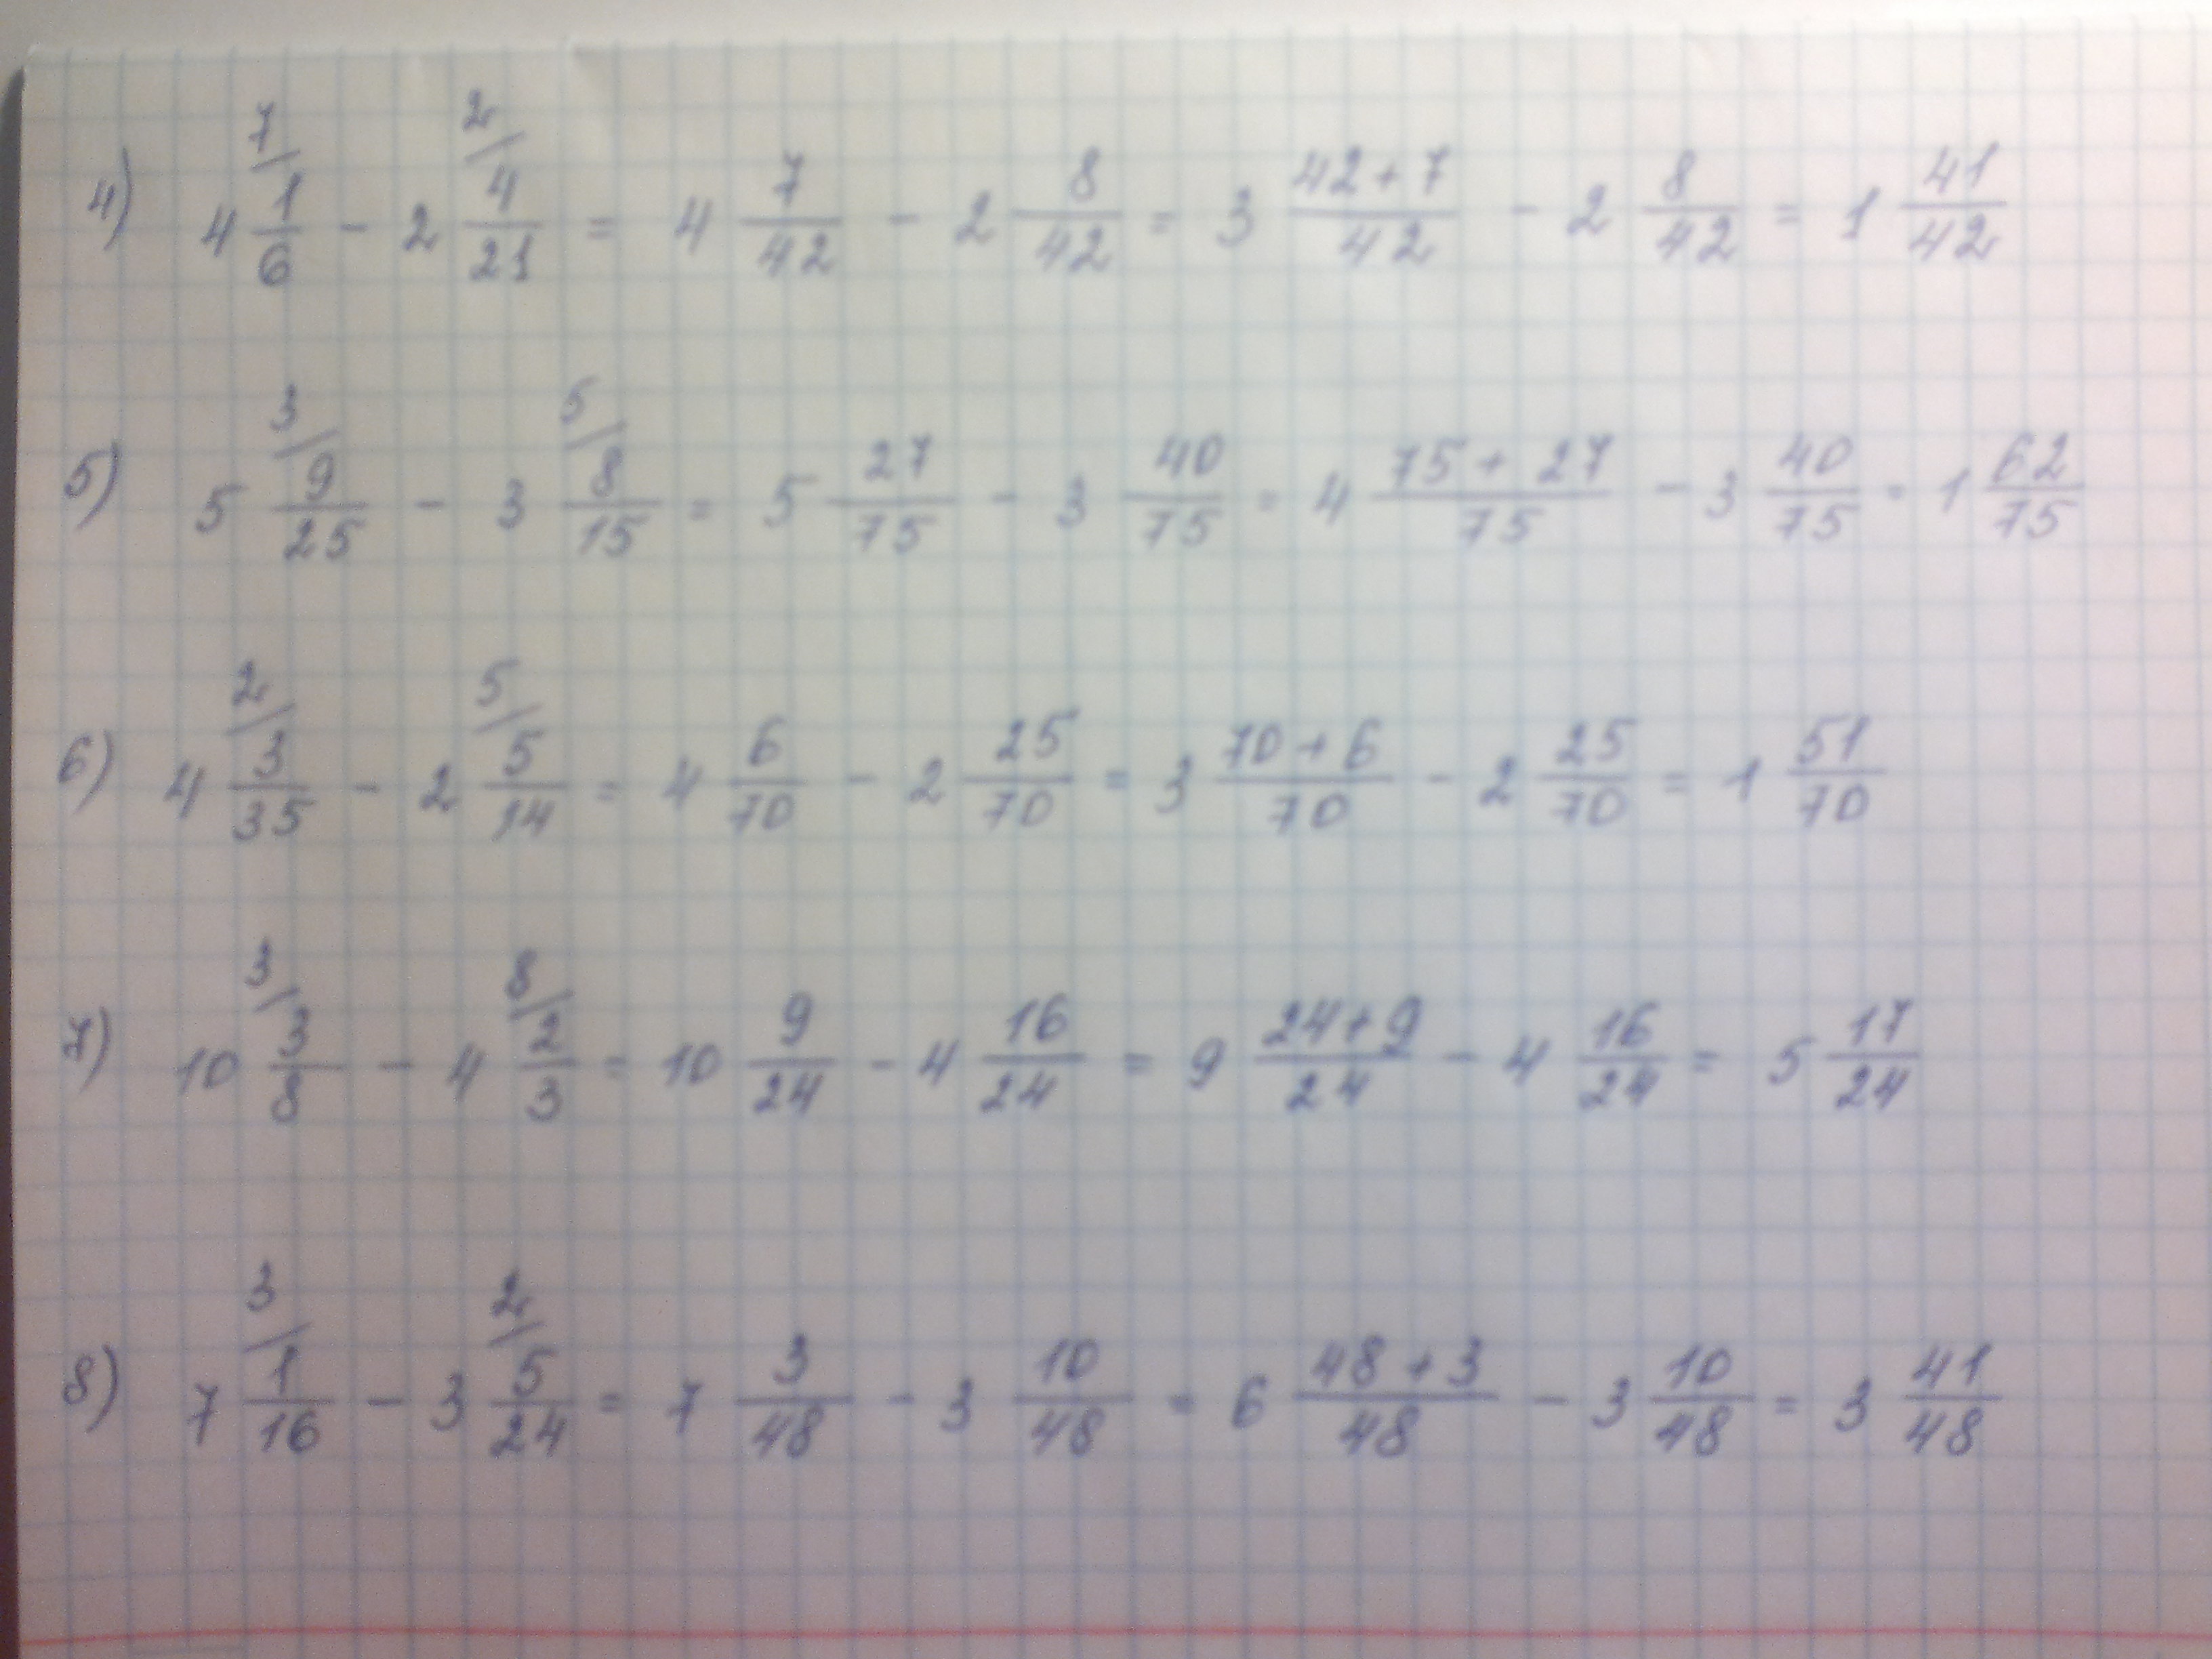 4) 4 7/ 1/6 - 2 2/ 4/21 = 4 7/42 - 2 8/42 = 3 42+7/42 - 2 8/42 = 1 41/42
5) 5 3/ 9/25 - 3 5/ 8/15 = 5 27/75 - 3 40/75 = 4 75+27/75 - 3 40/75 = 1 62/75
6) 4 2/ 3/35 - 2 5/ 5/14 = 4 6/70 - 2 25/70 = 3 70+6/70 - 2 25/70 = 1 51/70
7) 10 3/ 3/8 - 4 8/ 2/3 = 10 9/24 - 4 16/24 = 9 24+9/24 - 4 16/24 = 5 17/24
8) 7 3/ 1/16 - 3 2/ 5/24 = 7 3/48 - 3 10/48 = 6 48+3/48 - 3 10/48 = 3 41/48